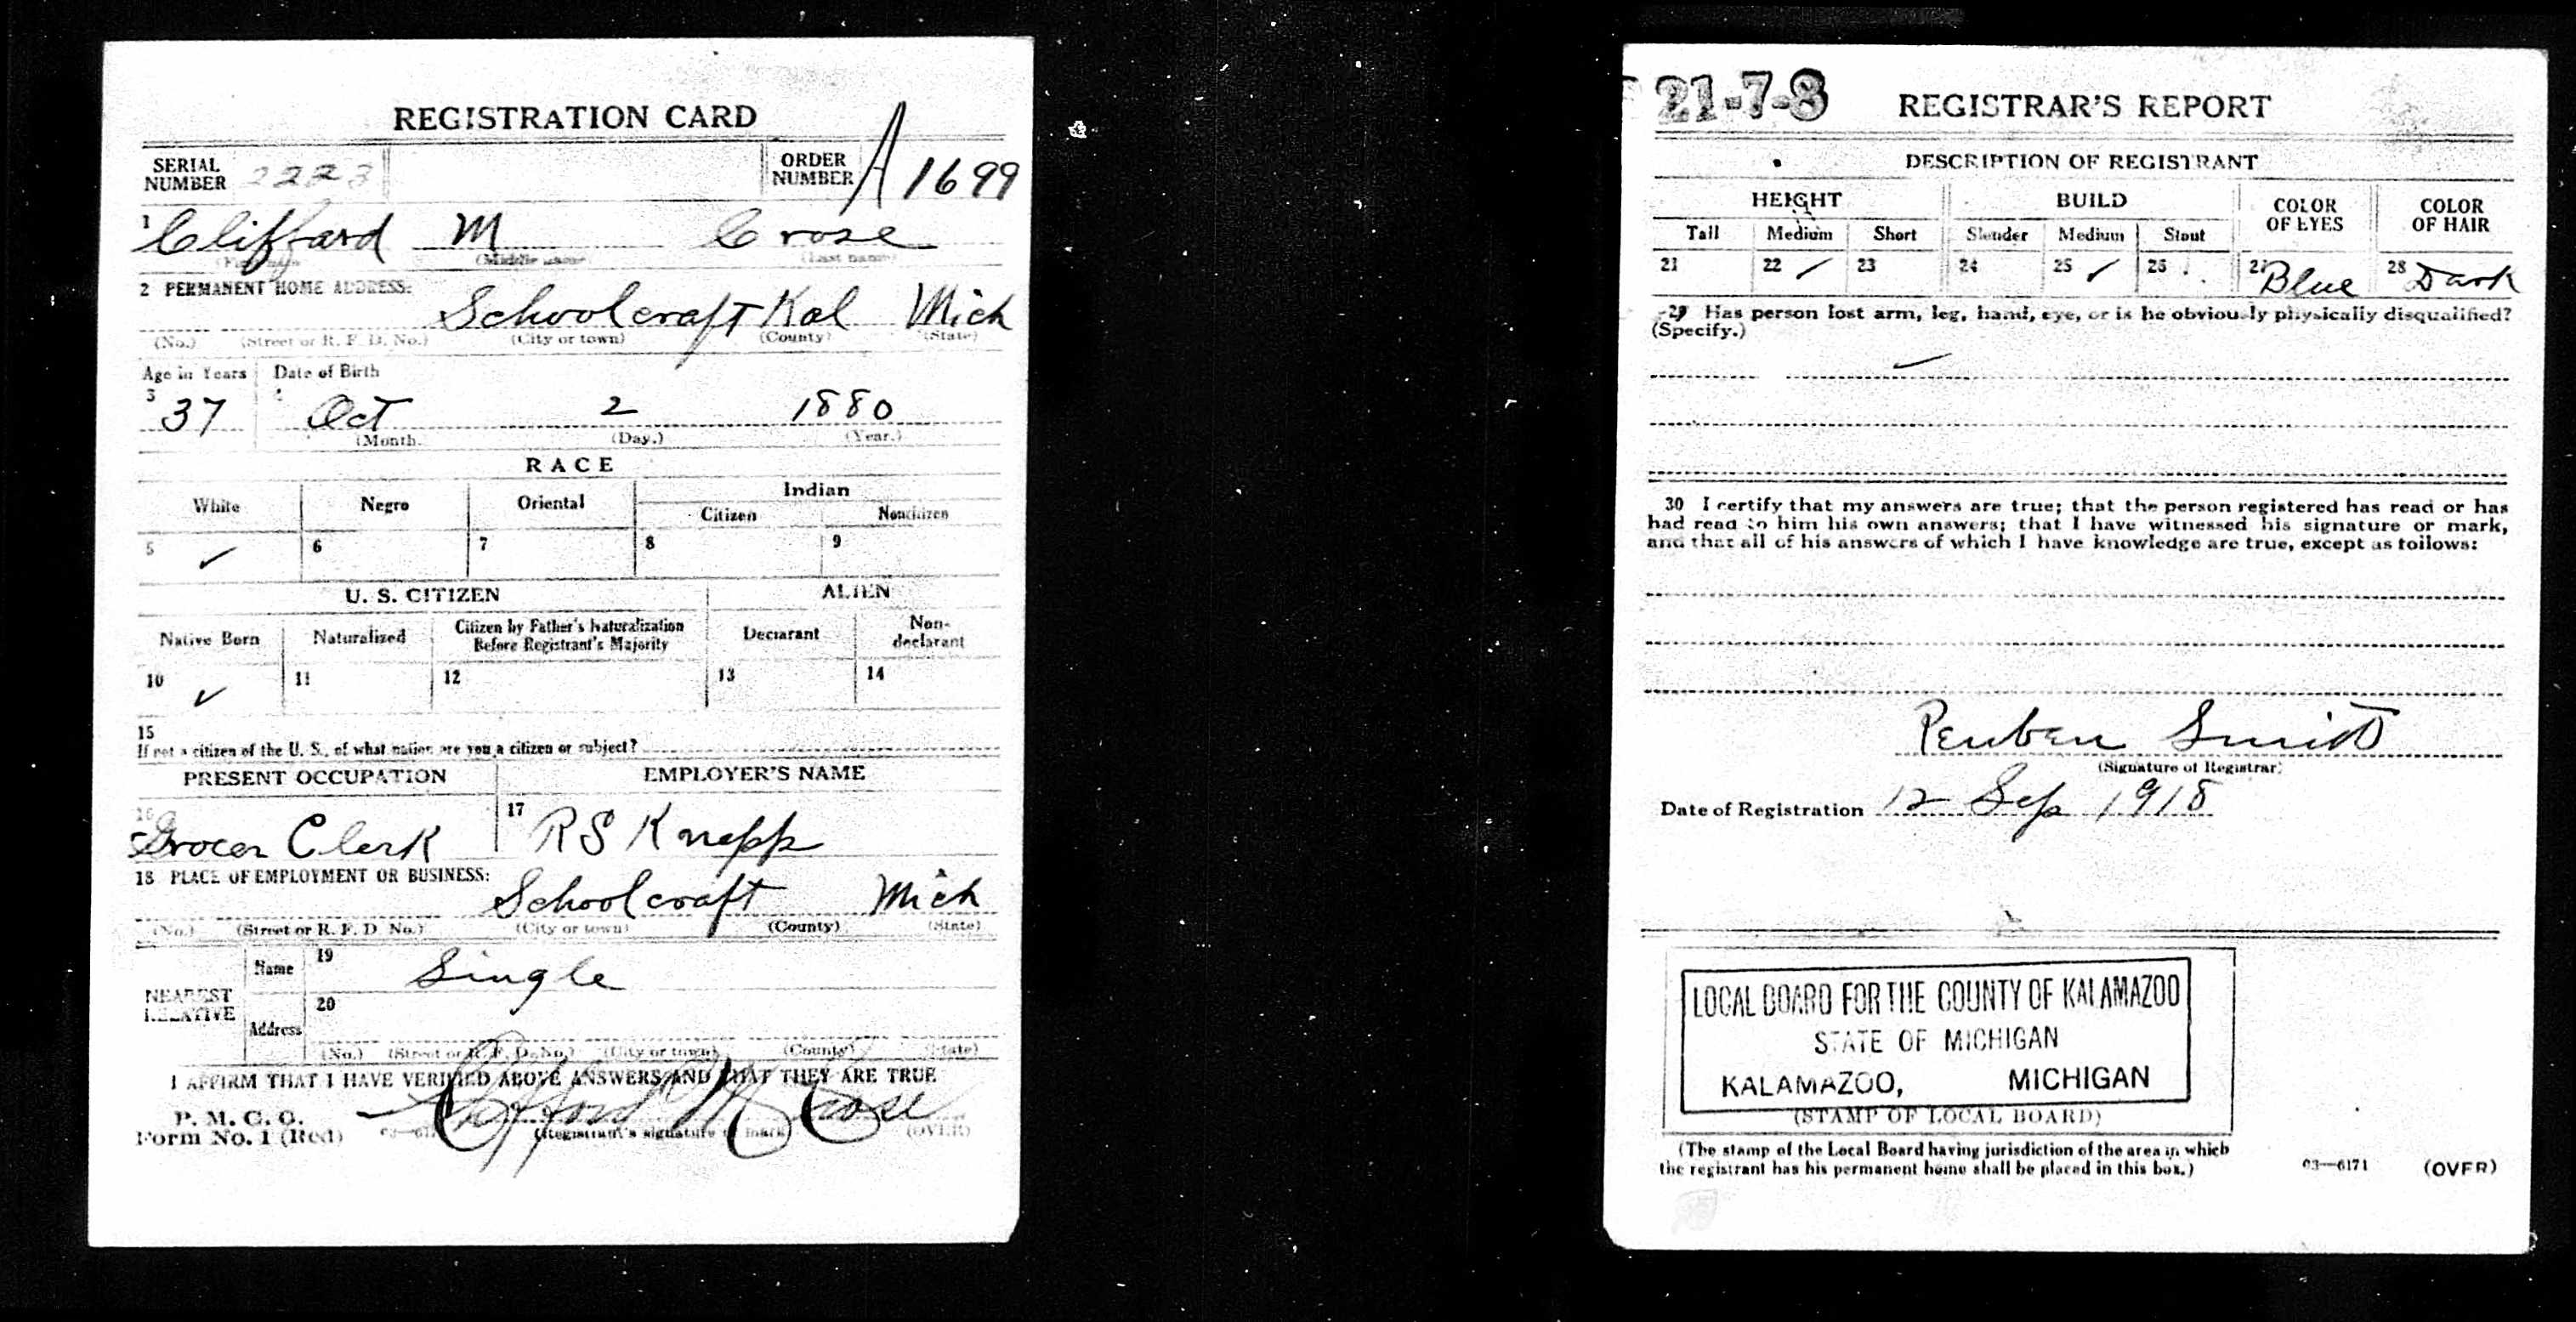 REGISTRATION CARD
SERIAL NUMBER 2223
ORDER NUMBER A 1699
1 Cliffard M Crose
(First name) (Middle name) (Last name)
2 PERMANENT HOME ADDRESS:
Schoolcraft Kal Mich
(No.) (Street or R. F. D. No.) (City or town) (County) (State)
Age in Years Date of Birth
3 37 Oct 2 1880
(Month. (Day.) (Year.)
RACE
White Negro Oriental Indian
Citizen Noncitizen
5 ✓ 6 7 8 9
U. S. CITIZEN ALIEN
Native Born Naturalized Citizen by Father's Naturalization Before Registrant's Majority Declarant Non-declarant
10 ✓ 11 12 13 14
15
If not a citizen of the U. S., of what nation are you a citizen or subject?
PRESENT OCCUPATION EMPLOYER'S NAME
16 Grocer Clerk 17 RS Knepp
18 PLACE OF EMPLOYMENT OR BUSINESS:
Schoolcraft Mich
(No.) (Street or R. F. D. No.) (City or town) (County) (State)
NEAREST RELATIVE
Name 19 Single
Address 20
(No.) (Street or R. F. D. No.) (City or town) (County) (State)
I AFFIRM THAT I HAVE VERIFIED ABOVE ANSWERS AND THAT THEY ARE TRUE
P. M. G. O.
Form No. 1 (Red) Clifford M Crose
(Registrant's signature or mark) (OVER)
21-7-8 REGISTRAR'S REPORT
DESCRIPTION OF REGISTRANT
HEIGHT BUILD COLOR OF EYES COLOR OF HAIR
Tall Medium Short Slender Medium Stout
21 22 ✓ 23 24 25 ✓ 26 27 Blue 28 Dark
29 Has person lost arm, leg, hand, eye, or is he obviously physically disqualified?
(Specify.)
✓
30 I certify that my answers are true; that the person registered has read or has
had read to him his own answers; that I have witnessed his signature or mark,
and that all of his answers of which I have knowledge are true, except as follows:
Reuben Smith
(Signature of Registrar)
Date of Registration 12 Sep 1918
LOCAL BOARD FOR THE COUNTY OF KALAMAZOO
STATE OF MICHIGAN
KALAMAZOO, MICHIGAN
(STAMP OF LOCAL BOARD)
(The stamp of the Local Board having jurisdiction of the area in which
the registrant has his permanent home shall be placed in this box.)
03—6171 (OVER)